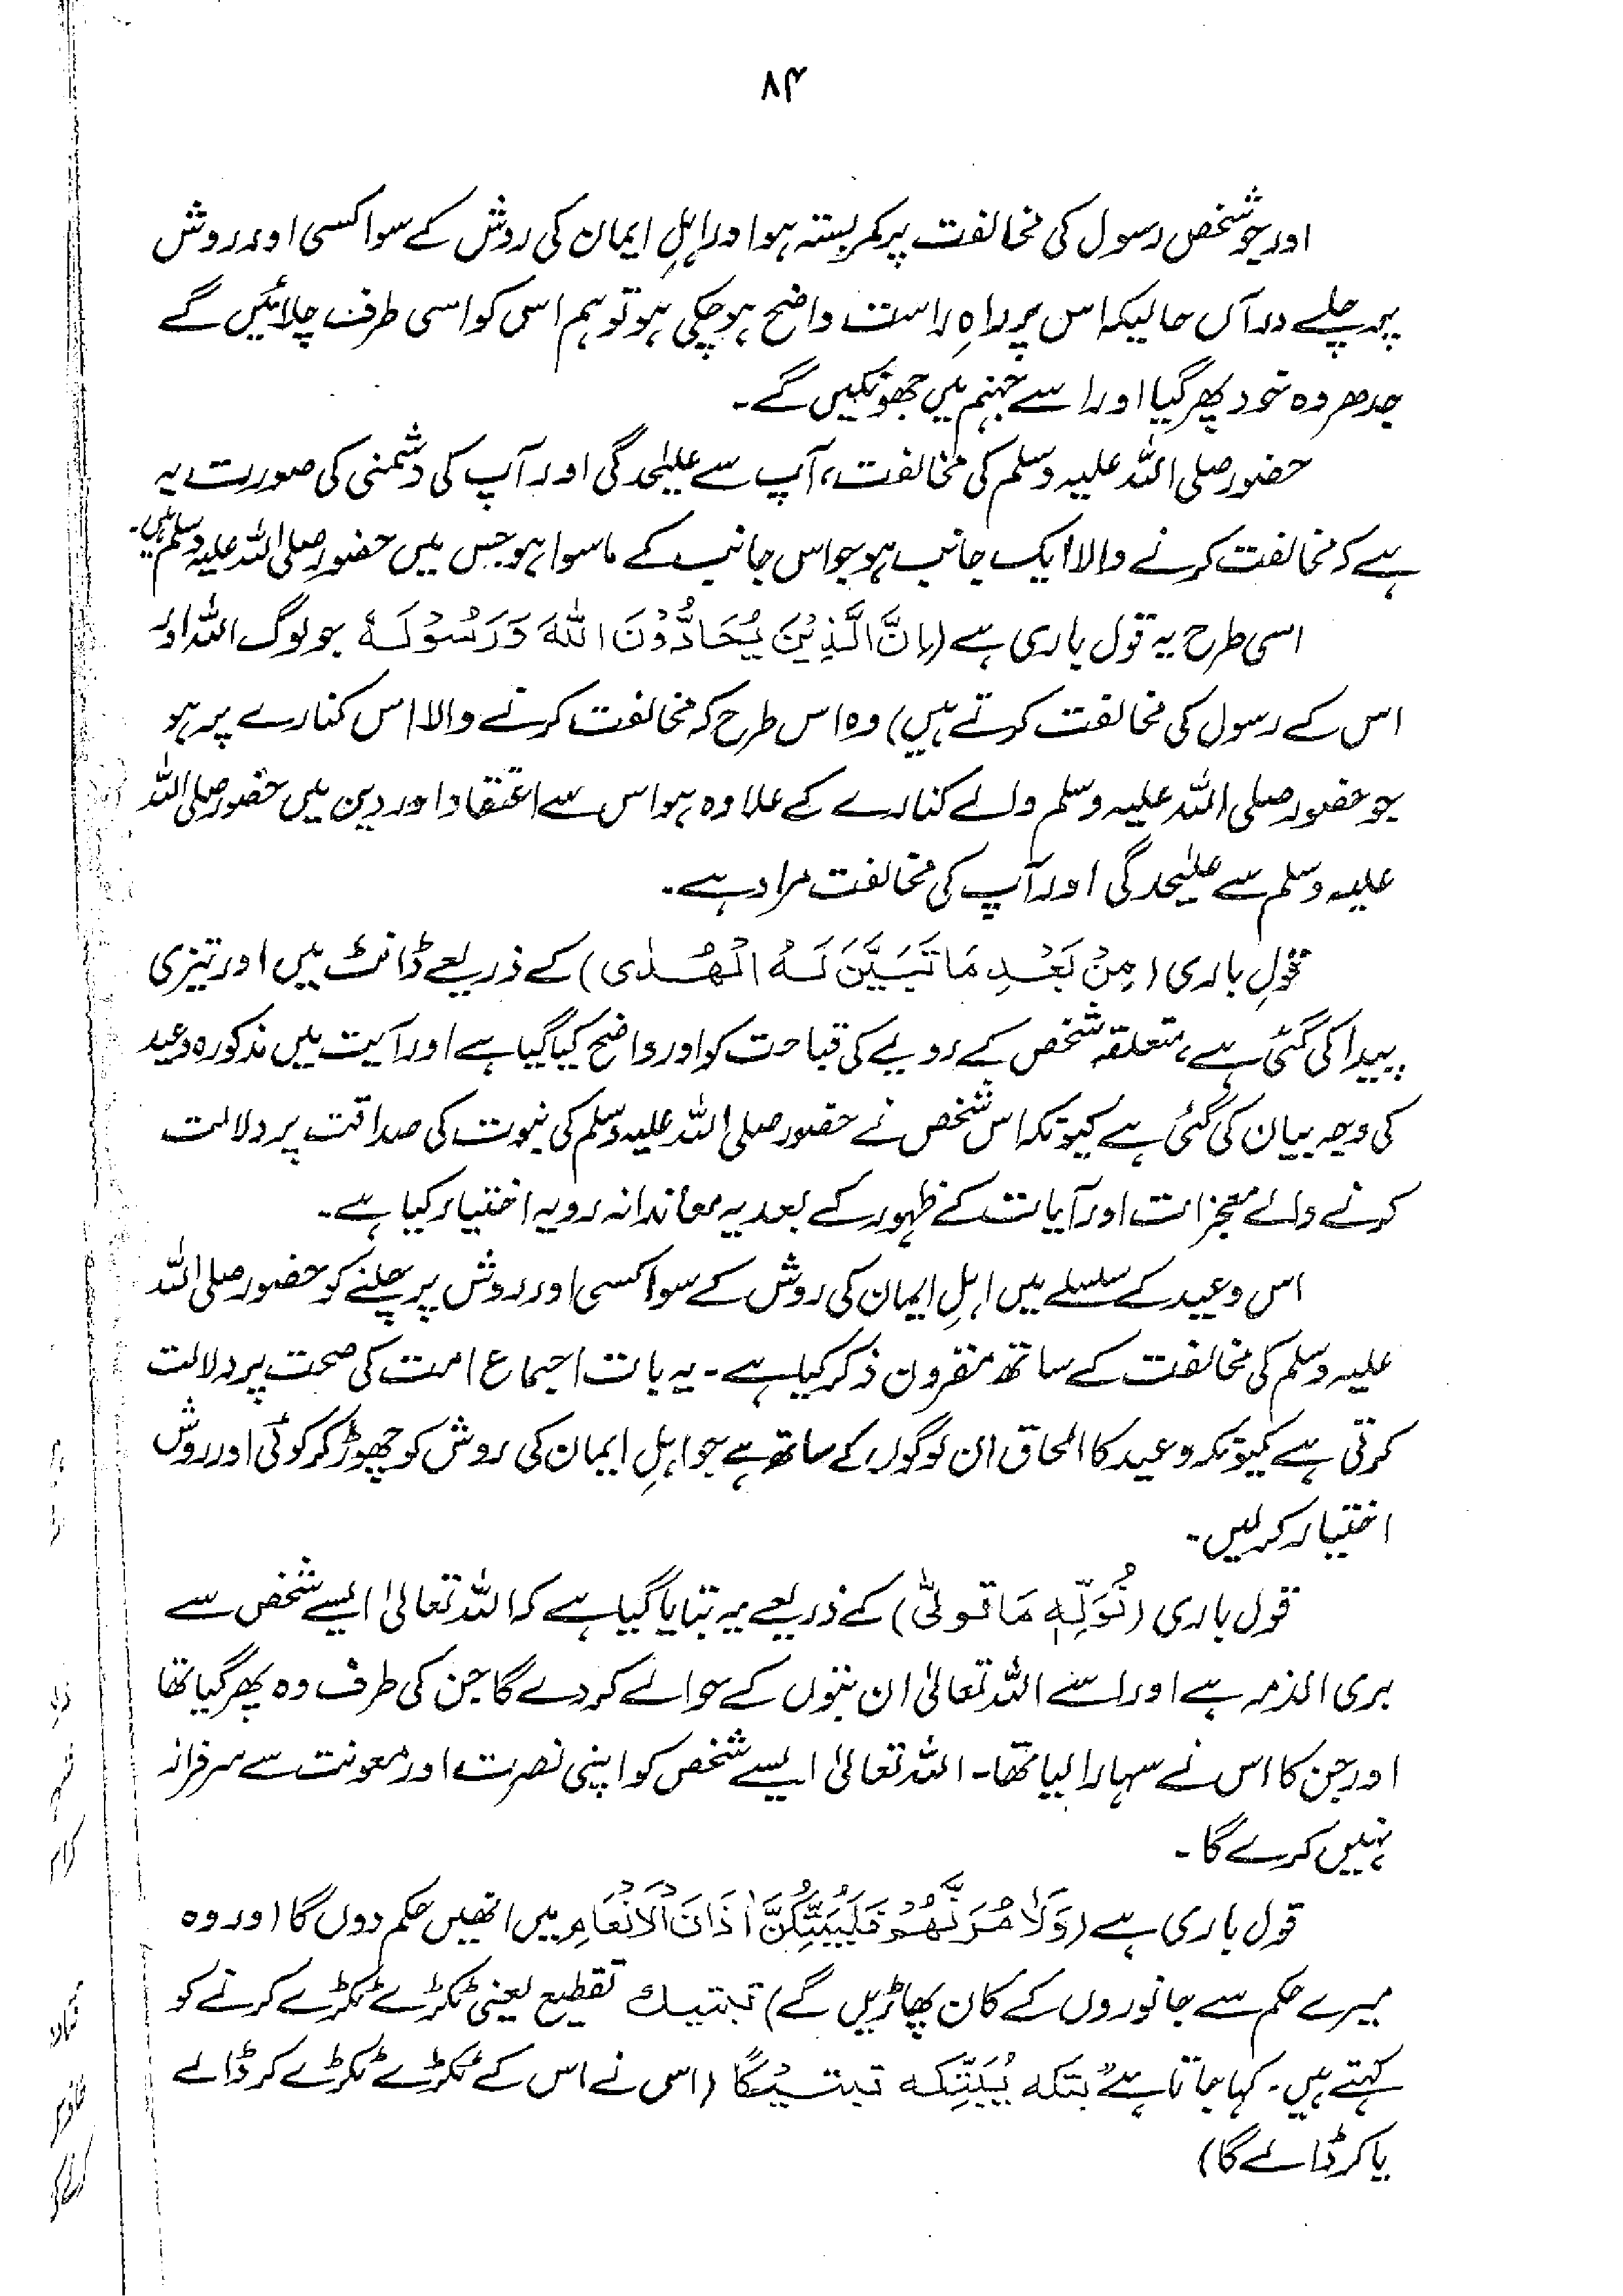 ۸۴
اور جو شخص رسول کی مخالفت پر کمربستہ ہو اور اہلِ ایمان کی روش کے سوا کسی اور روش
پر چلے درآں حالیکہ اس پر راہِ راست واضح ہو چکی ہو تو ہم اس کو اسی طرف چلائیں گے
جدھر وہ خود پھر گیا اور اسے جہنم میں جھونکیں گے۔
حضور صلی اللہ علیہ وسلم کی مخالفت، آپ سے علیٰحدگی اور آپ کی دشمنی کی صورت یہ
ہے کہ مخالفت کرنے والا ایک جانب ہو جو اس جانب کے ماسوا ہو جس میں حضور صلی اللہ علیہ وسلم ہیں۔
اسی طرح یہ قول باری ہے (اِنَّ الَّذِیْنَ یُحَادُّوْنَ اللہَ وَرَسُوْلَہٗ جو لوگ اللہ اور
اس کے رسول کی مخالفت کرتے ہیں) وہ اس طرح کہ مخالفت کرنے والا اس کنارے پر ہو
جو حضور صلی اللہ علیہ وسلم والے کنارے کے علاوہ ہو اس سے اعتقاد اور دین میں حضور صلی اللہ
علیہ وسلم سے علیٰحدگی اور آپ کی مخالفت مراد ہے۔
قولِ باری (مِنْ بَعْدِ مَا تَبَیَّنَ لَہُ الْھُدٰی) کے ذریعے ڈانٹ میں اور تیزی
پیدا کی گئی ہے، متعلقہ شخص کے رویے کی قباحت کو اور واضح کیا گیا ہے اور آیت میں مذکورہ وعید
کی وجہ بیان کی گئی ہے کیونکہ اس شخص نے حضور صلی اللہ علیہ وسلم کی نبوت کی صداقت پر دلالت
کرنے والے معجزات اور آیات کے ظہور کے بعد یہ معاندانہ رویہ اختیار کیا ہے۔
اس وعید کے سلسلے میں اہلِ ایمان کی روش کے سوا کسی اور روش پر چلنے کو حضور صلی اللہ
علیہ وسلم کی مخالفت کے ساتھ مقرون ذکر کیا ہے۔ یہ بات اجماع امت کی صحت پر دلالت
کرتی ہے کیونکہ وعید کا الحاق ان لوگوں کے ساتھ ہے جو اہلِ ایمان کی روش کو چھوڑ کر کوئی اور روش
اختیار کرلیں۔
قول باری (نُوَلِّہٖ مَا تَوَلّٰی) کے ذریعے یہ بتایا گیا ہے کہ اللہ تعالیٰ ایسے شخص سے
بری الذمہ ہے اور اسے اللہ تعالیٰ ان بتوں کے حوالے کردے گا جن کی طرف وہ پھر گیا تھا
اور جن کا اس نے سہارا لیا تھا۔ اللہ تعالیٰ ایسے شخص کو اپنی نصرت اور معونت سے سرفراز
نہیں کرے گا۔
قول باری ہے (وَلَاٰمُرَنَّھُمْ فَلَیُبَتِّکُنَّ اٰذَانَ الْاَنْعَامِ میں انھیں حکم دوں گا اور وہ
میرے حکم سے جانوروں کے کان پھاڑیں گے) تبتیک تقطیع یعنی ٹکڑے ٹکڑے کرنے کو
کہتے ہیں۔ کہا جاتا ہے "بتکہ یُبَتِّکہ تبتیْکًا (اس نے اس کے ٹکڑے ٹکڑے کر ڈالے
یا کر ڈالے گا)